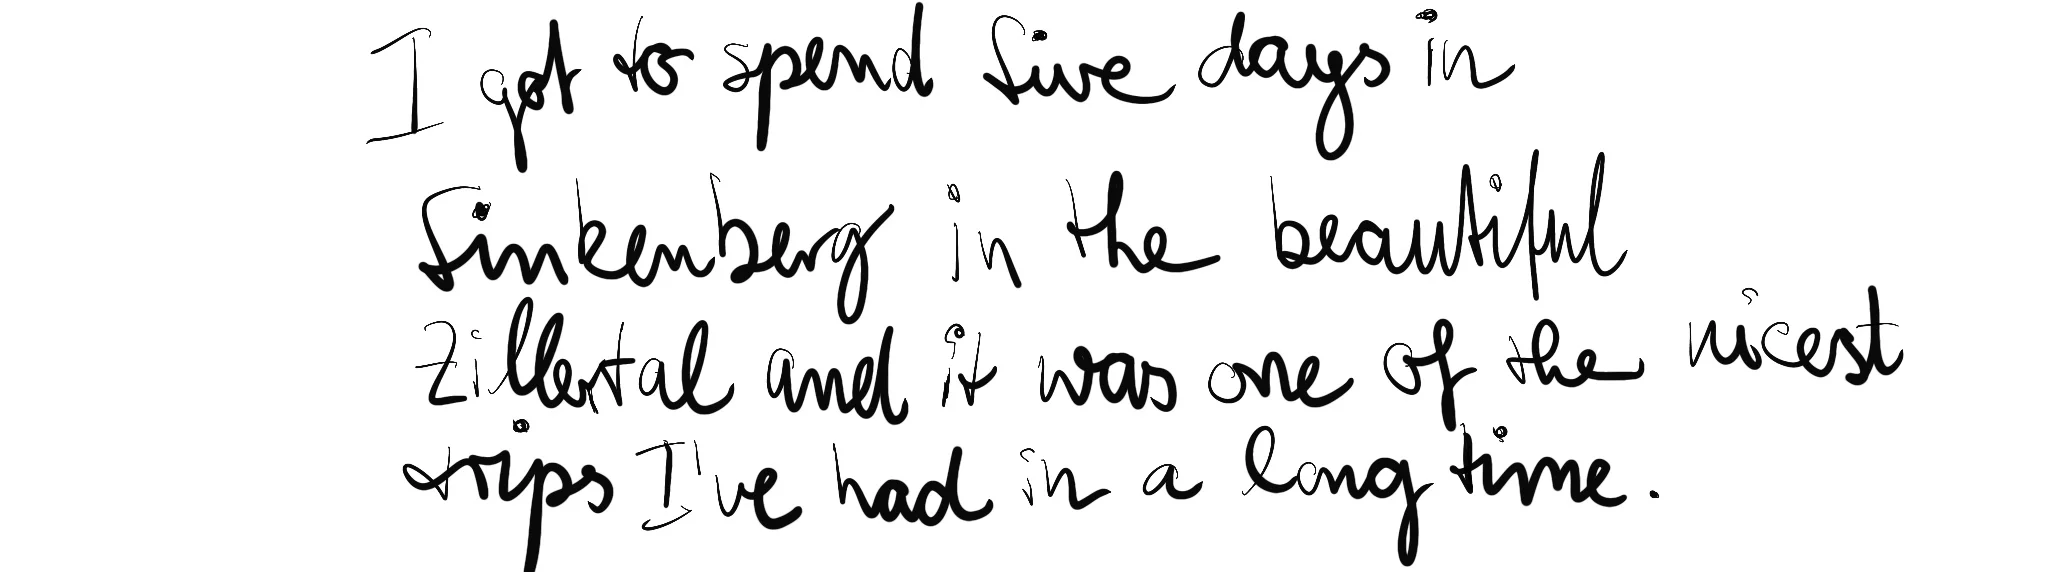 I got to spend five days in
Finkenberg in the beautiful
Zillertal and it was one of the nicest
trips I've had in a long time.